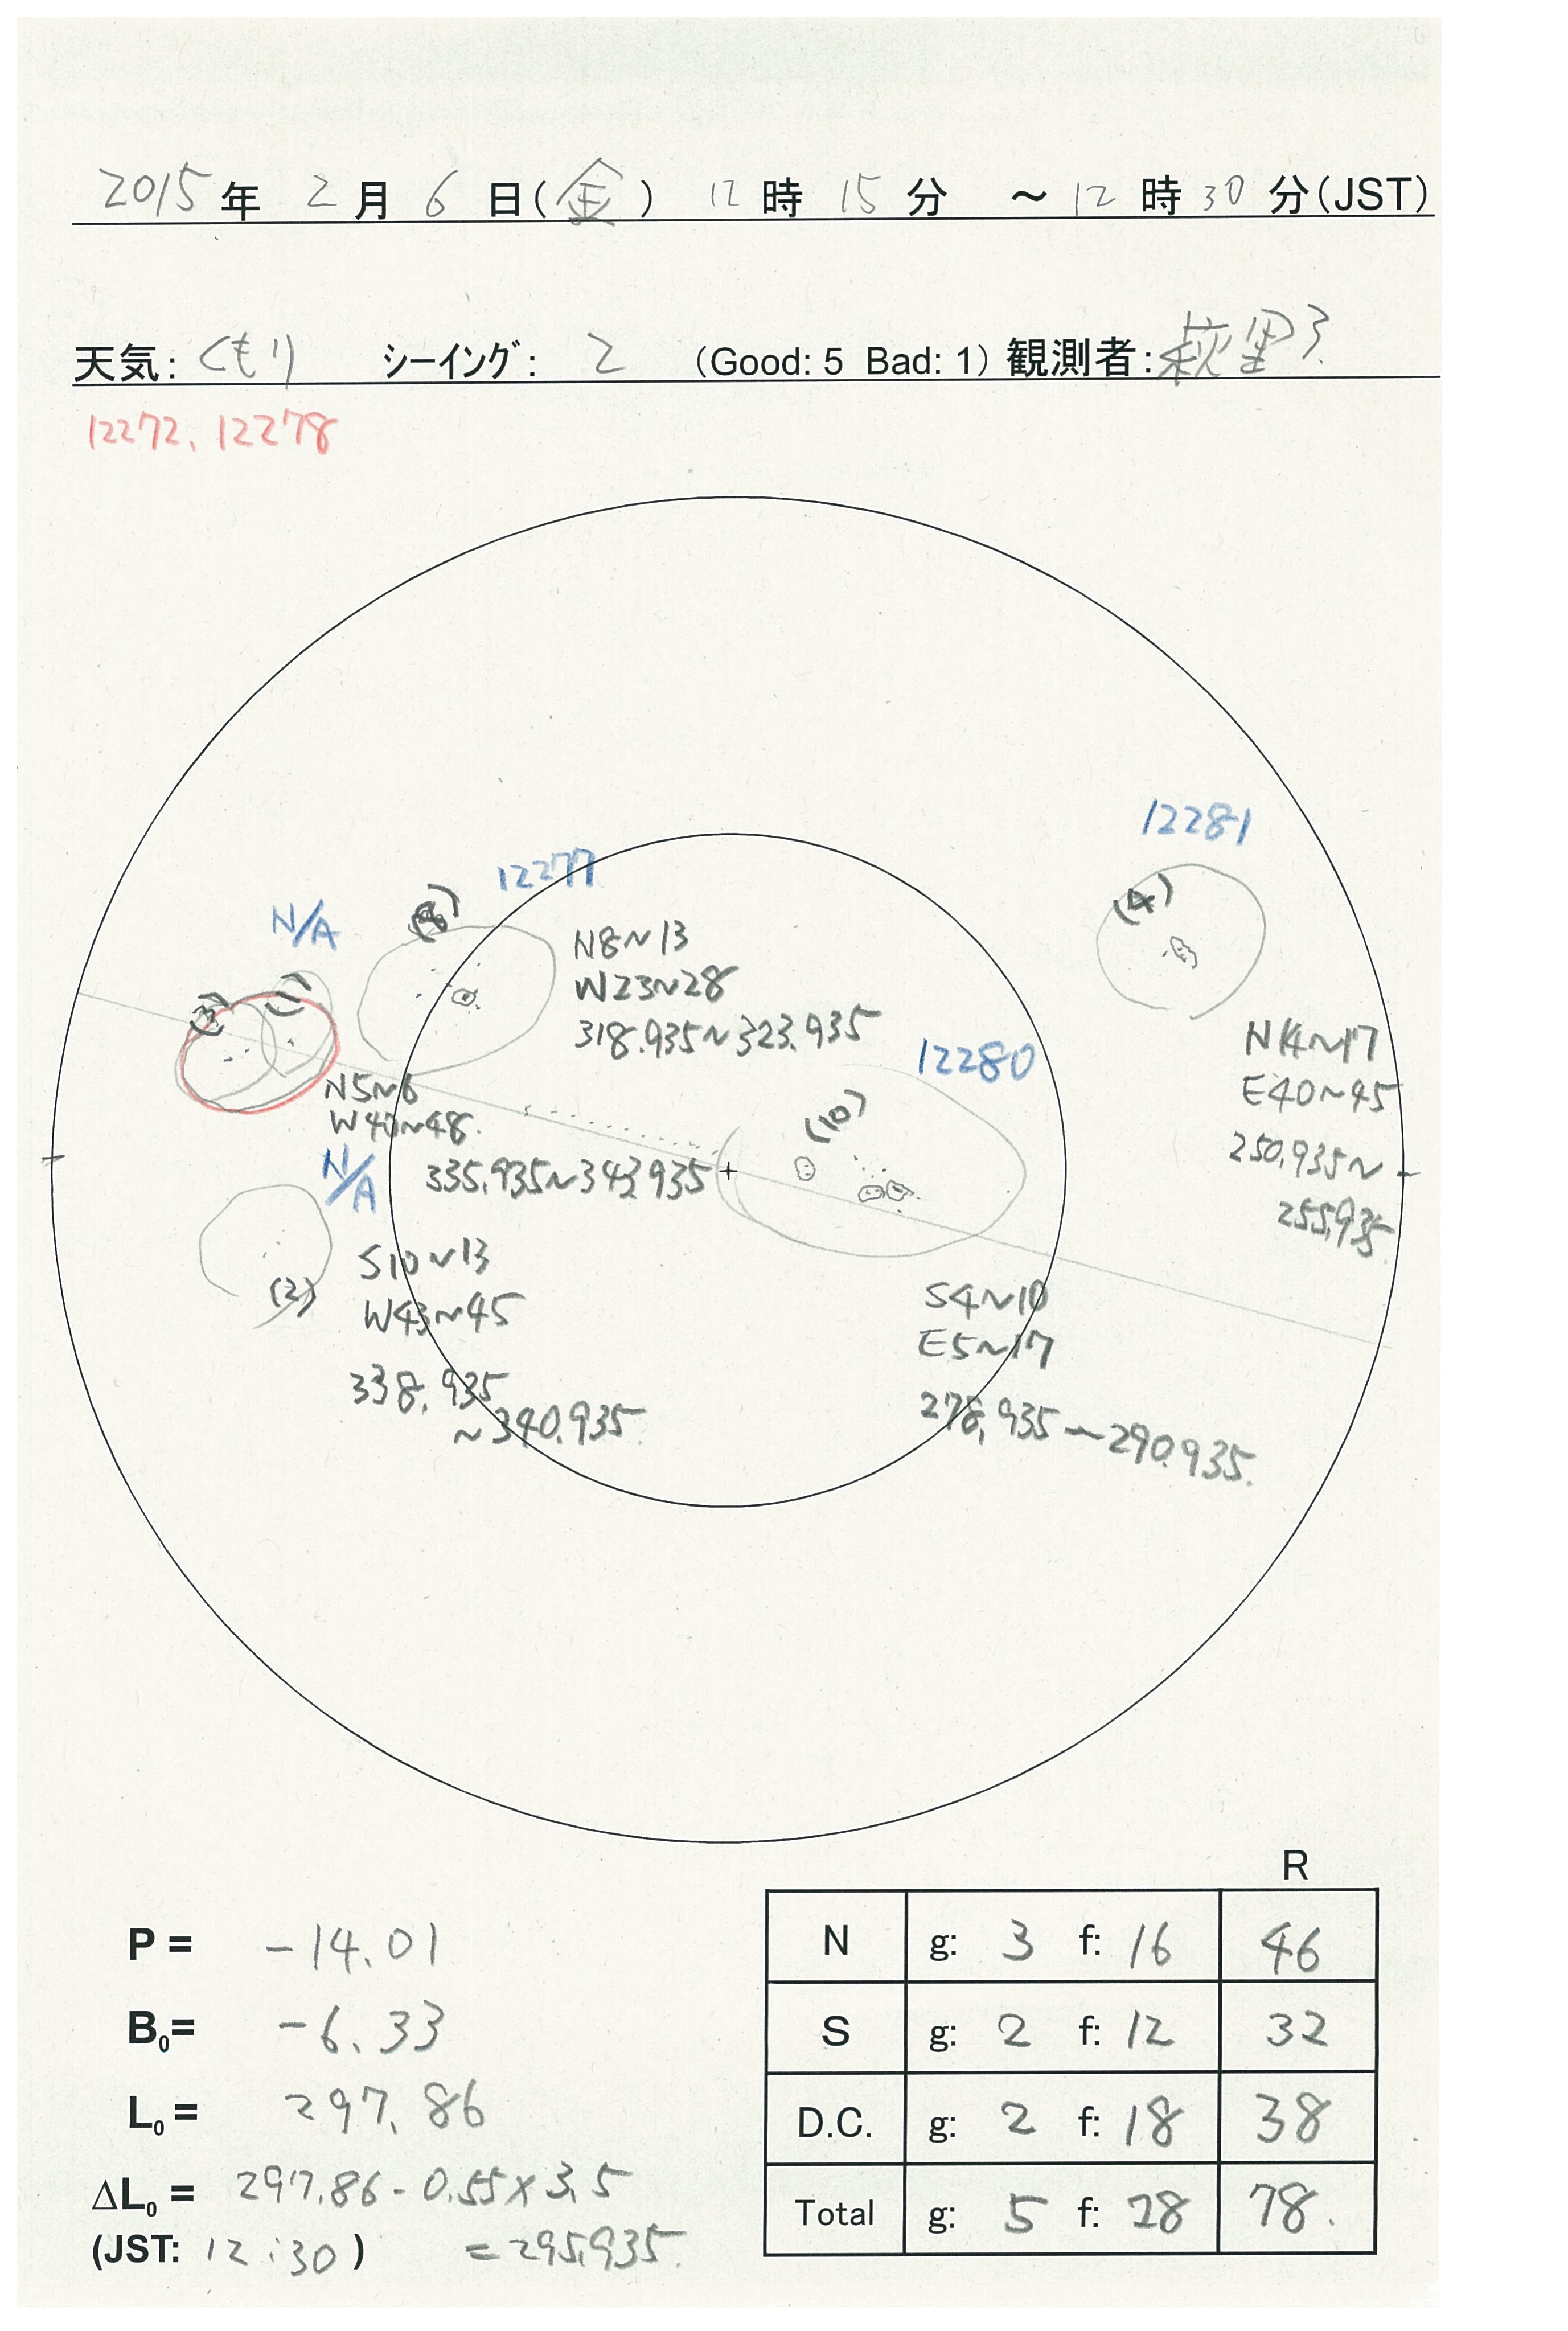 2015年 2月 6日(金) 12時 15分 ～12時30分(JST)
天気: くもり シーイング: 2 (Good: 5 Bad: 1) 観測者:
12272, 12278
12281
(4)
12277
(8)
N/A
N8~13
W23~28
318.935~323.935
(3) (1)
12280
N14~17
E40~45
250.935~
255.935
N5~6
W40~48.
(10)
N/A
335.935~343.935
S10~13
(2)
W43~45
338.935
~340.935
S4~10
E5~17
278.935~290.935.
R
P = -14.01
N g: 3 f: 16 46
B0= -6.33
S g: 2 f: 12 32
L0= 297.86
D.C. g: 2 f: 18 38
ΔL0 = 297.86-0.55×3.5
Total g: 5 f: 28 78.
(JST: 12:30) = 295.935.